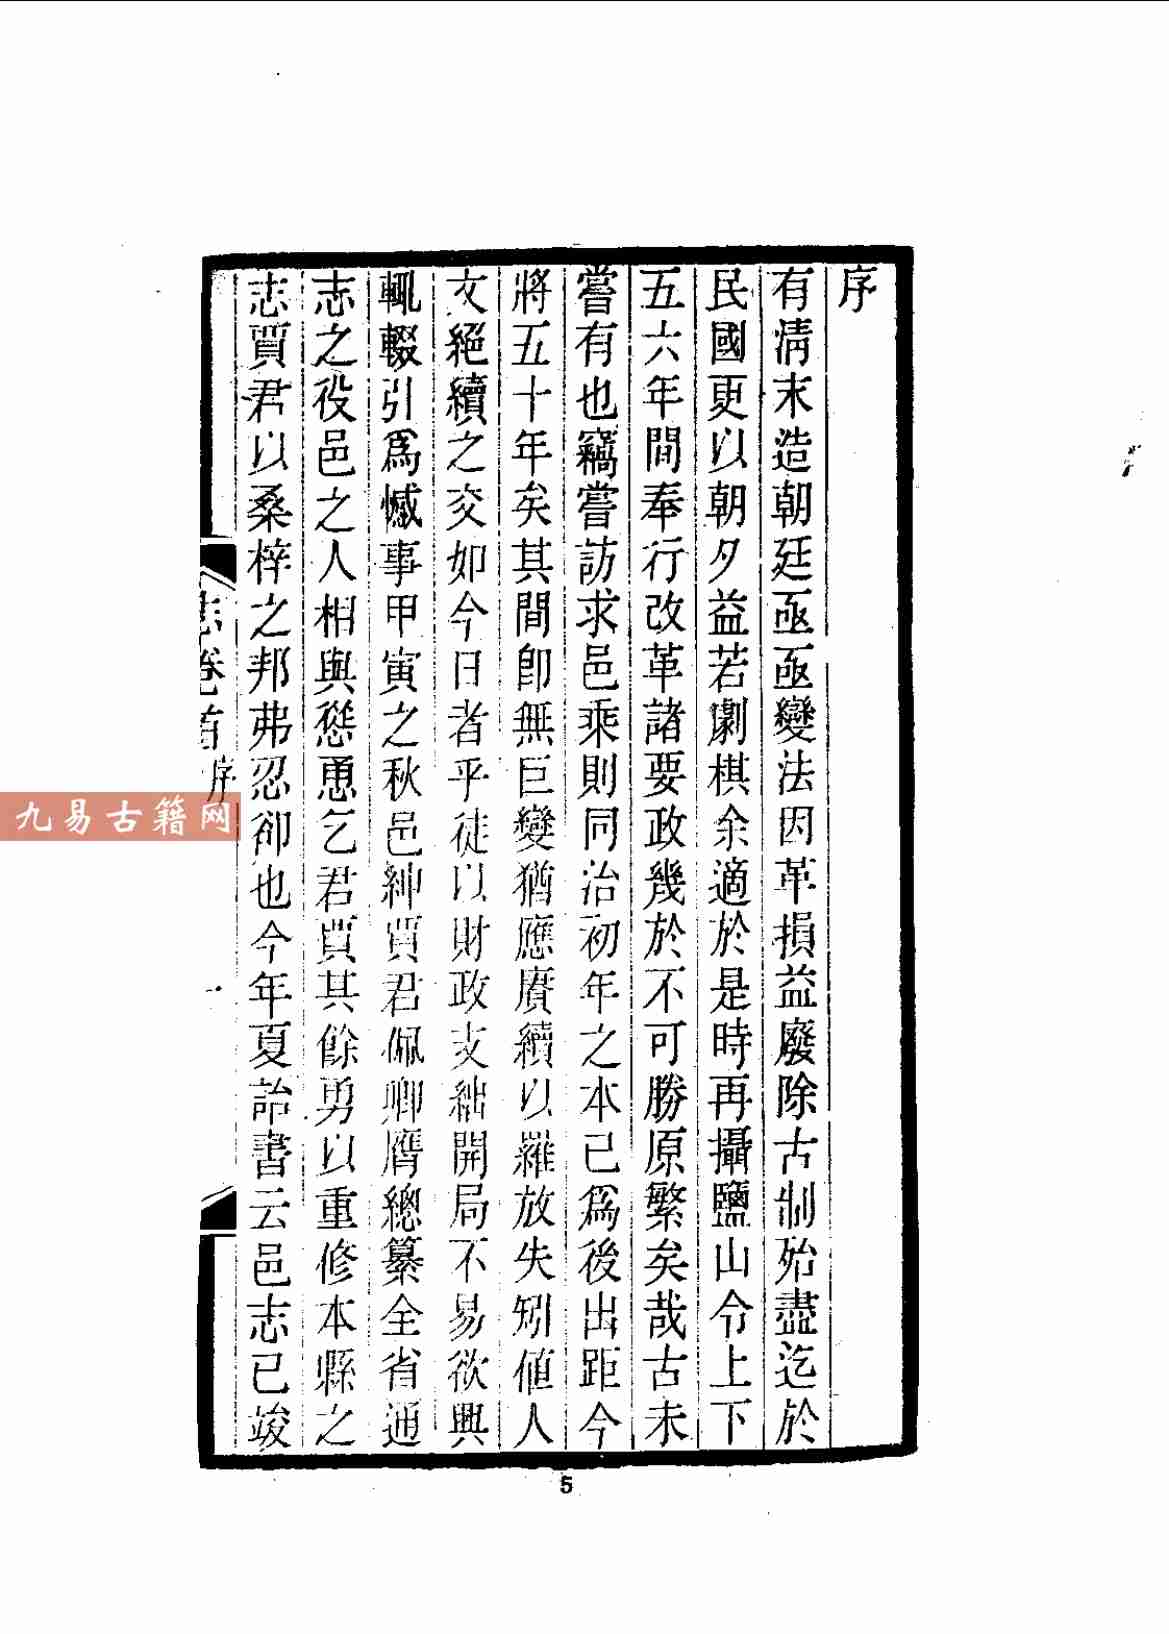 序
有清末造朝廷亟亟變法因革損益廢除古制殆盡迄於
民國更以朝夕益若劇棋余適於是時再攝鹽山令上下
五六年間奉行改革諸要政幾於不可勝原繁矣哉古未
嘗有也竊嘗訪求邑乘則同治初年之本已爲後出距今
將五十年矣其間卽無巨變猶應賡續以羅放失矧値人
文絕續之交如今日者乎徒以財政支絀開局不易欲興
輒輟引爲憾事甲寅之秋邑紳賈君佩卿膺總纂全省通
志之役邑之人相與慫恿乞君賈其餘勇以重修本縣之
志賈君以桑梓之邦弗忍卻也今年夏詒書云邑志已竣
志卷首
序
一
九易古籍网
5